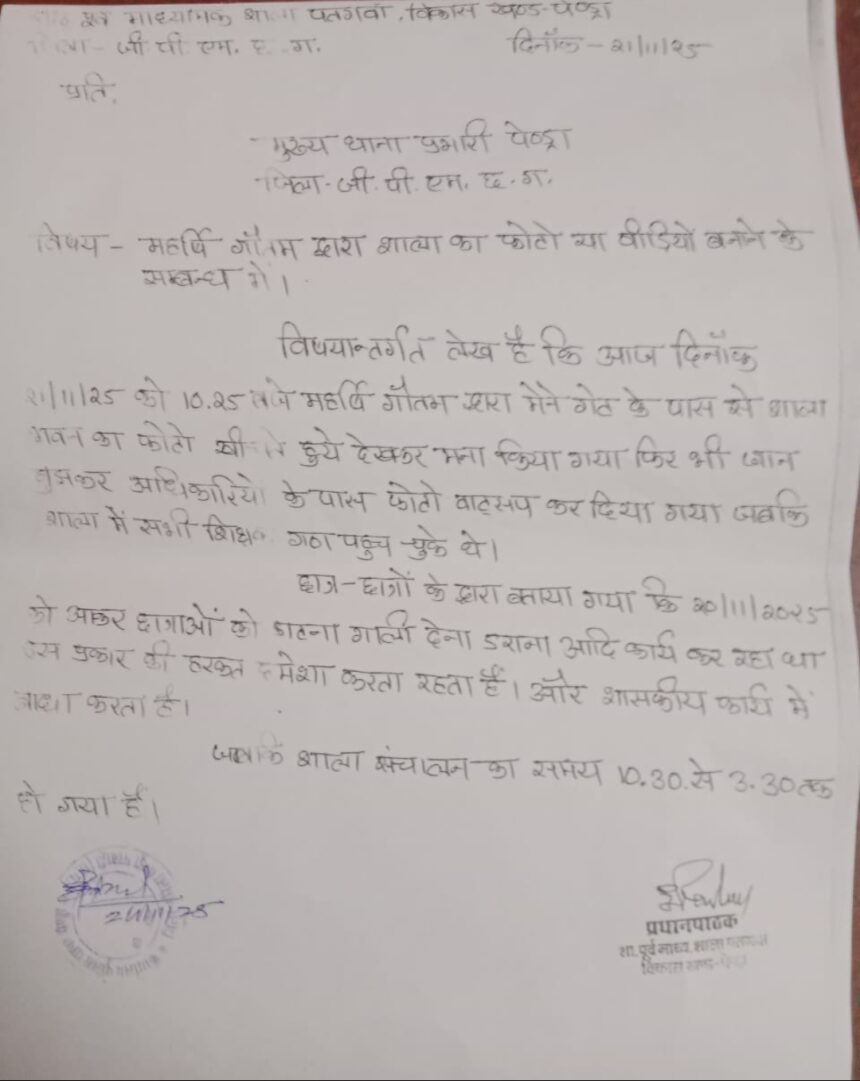 पूर्व माध्यमिक शाला पतगवां, विकास खण्ड-पेण्ड्रा
जी पी एम. छ. ग. दिनॉक - 21/11/25
प्रति,
मुख्य थाना प्रभारी पेण्ड्रा
जिला-जी. पी. एम. छ. ग.
विषय - महर्षि गौतम द्वारा शाला का फोटो या वीडियो बनाने के
सम्बन्ध में।
विषयान्तर्गत लेख है कि आज दिनॉक
21/11/25 को 10.25 बजे महर्षि गौतम द्वारा मेने गेट के पास से शाला
भवन का फोटो हुये देखकर मना किया गया फिर भी जान
बुझकर अधिकारियो के पास फोटो वाट्सप कर दिया गया जबकि
शाला में सभी शिक्षक गण पहुच चुके थे।
छात्र-छात्रों के द्वारा बताया गया कि 20/11/2025
को आकर छात्राओं को डाटना गाली देना डराना आदि कार्य कर रहा था
इस प्रकार की हरकत हमेशा करता रहता है। और शासकीय कार्य में
बाधा करता है।
जबकि शाला संचालन का समय 10.30 से 3.30 तक
हो गया है।
21/11/25
प्रधानपाठक
शा. पूर्व माध्य. शाला
विकास खण्ड-पेण्ड्रा